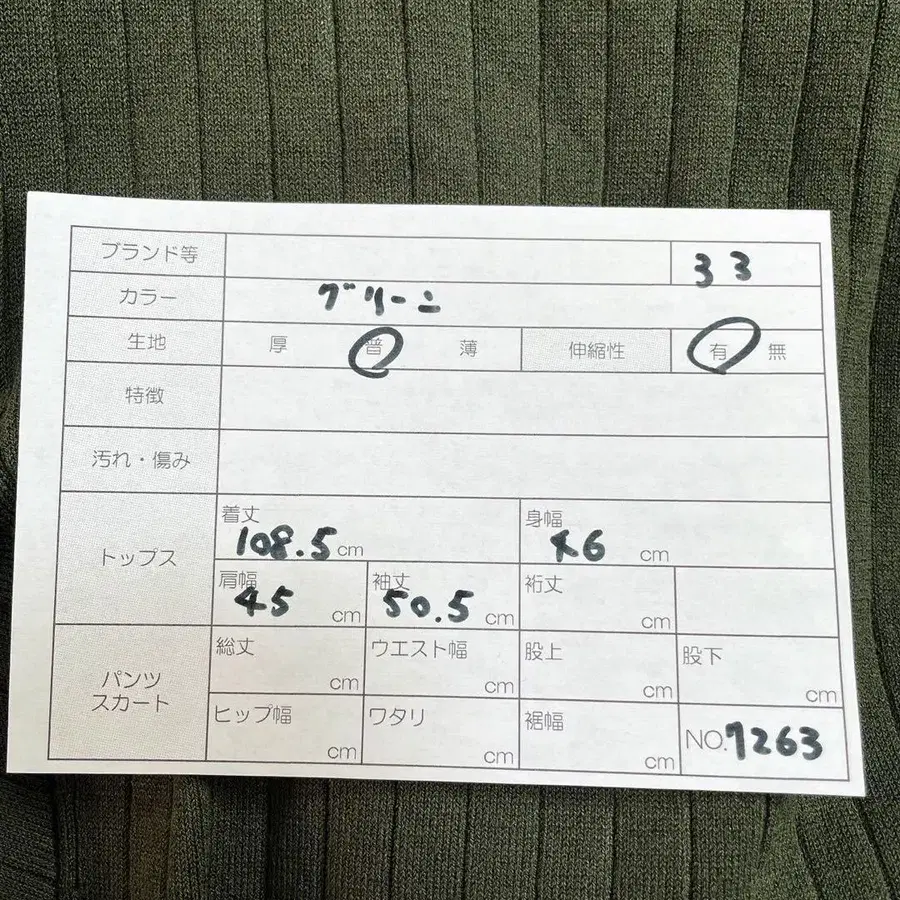 ブランド等 33
カラー グリーン
生地 厚 普 薄 伸縮性 有 無
特徴
汚れ・傷み
トップス
着丈 108.5cm 身幅 46 cm
肩幅 45 cm 袖丈 50.5 cm 裄丈 cm
パンツ
スカート
総丈 cm ウエスト幅 cm 股上 cm 股下 cm
ヒップ幅 cm ワタリ cm 裾幅 cm NO.7263